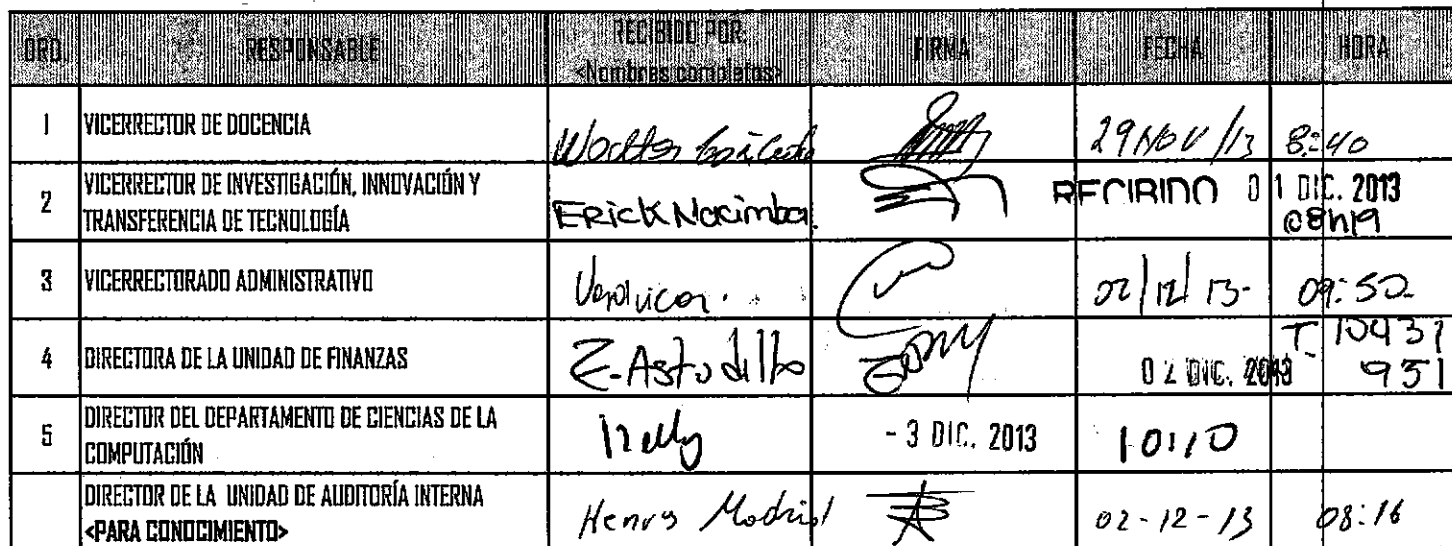 ORD. RESPONSABLE RECIBIDO POR: <Nombres completos> FIRMA FECHA HORA
1 VICERRECTOR DE DOCENCIA 29 NOV/13 8:40
2 VICERRECTOR DE INVESTIGACIÓN, INNOVACIÓN Y TRANSFERENCIA DE TECNOLOGÍA Erick Nacimba RECIBIDO 01 DIC. 2013 08h19
3 VICERRECTORADO ADMINISTRATIVO 02/12/13- 09:50
4 DIRECTORA DE LA UNIDAD DE FINANZAS Z. Astudillo 02 DIC. 2013 T. 10431 951
5 DIRECTOR DEL DEPARTAMENTO DE CIENCIAS DE LA COMPUTACIÓN - 3 DIC. 2013 10:10
DIRECTOR DE LA UNIDAD DE AUDITORÍA INTERNA <PARA CONOCIMIENTO> Henry Madrid 02-12-13 08:16